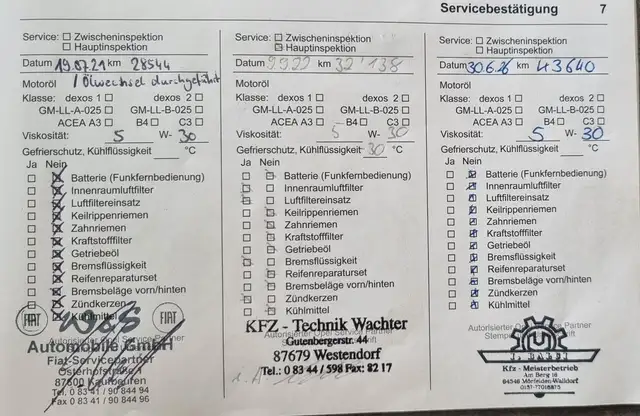 Servicebestätigung 7
Service: Zwischeninspektion
Hauptinspektion
Datum 19.07.21 km 28544
Motoröl / Ölwechsel durchgeführt
Klasse: dexos 1 dexos 2
GM-LL-A-025 GM-LL-B-025
ACEA A3 B4 C3
Viskosität: 5 W- 30
Gefrierschutz, Kühlflüssigkeit °C
Ja Nein
Batterie (Funkfernbedienung)
Innenraumluftfilter
Luftfiltereinsatz
Keilrippenriemen
Zahnriemen
Kraftstofffilter
Getriebeöl
Bremsflüssigkeit
Reifenreparaturset
Bremsbeläge vorn/hinten
Zündkerzen
Kühlmittel
FIAT FIAT
Automobile GmbH
Fiat-Servicepartner
Osterhofstraße
87600 Kaufbeuren
Tel. 0 83 41 / 90 844 94
Fax 0 83 41 / 90 844 96
Service: Zwischeninspektion
Hauptinspektion
Datum km 32'138
Motoröl
Klasse: dexos 1 dexos 2
GM-LL-A-025 GM-LL-B-025
ACEA A3 B4 C3
Viskosität: 5 W- 30
Gefrierschutz, Kühlflüssigkeit 30 °C
Ja Nein
Batterie (Funkfernbedienung)
Innenraumluftfilter
Luftfiltereinsatz
Keilrippenriemen
Zahnriemen
Kraftstofffilter
Getriebeöl
Bremsflüssigkeit
Reifenreparaturset
Bremsbeläge vorn/hinten
Zündkerzen
Kühlmittel
Autorisierter Opel Service Partner
KFZ - Technik Wachter
Gutenbergstr. 44
87679 Westendorf
Tel.: 0 83 44 / 598 Fax: 82 17
i.A.
Service: Zwischeninspektion
Hauptinspektion
Datum 30.6.26 km 43640
Motoröl
Klasse: dexos 1 dexos 2
GM-LL-A-025 GM-LL-B-025
ACEA A3 B4 C3
Viskosität: 5 W- 30
Gefrierschutz, Kühlflüssigkeit °C
Ja Nein
Batterie (Funkfernbedienung)
Innenraumluftfilter
Luftfiltereinsatz
Keilrippenriemen
Zahnriemen
Kraftstofffilter
Getriebeöl
Bremsflüssigkeit
Reifenreparaturset
Bremsbeläge vorn/hinten
Zündkerzen
Kühlmittel
Autorisierter Opel Service Partner
Kfz - Meisterbetrieb
Am Berg 16
64546 Mörfelden-Walldorf